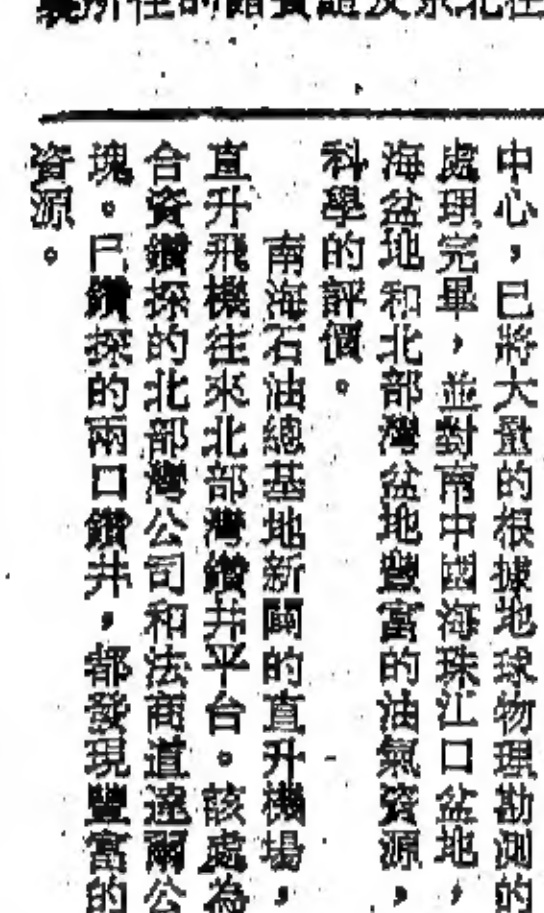 中心，已將大量的根據地球物理勘測的
處理完畢，並對南中國海珠江口盆地，
海盆地和北部灣盆地豐富的油氣資源，
科學的評價。
南海石油總基地新闢的直升機場，
直升飛機往來北部灣鑽井平台。該處為
合資鑽探的北部灣公司和法商道達爾公
塊。已鑽探的兩口鑽井，都發現豐富的
資源。